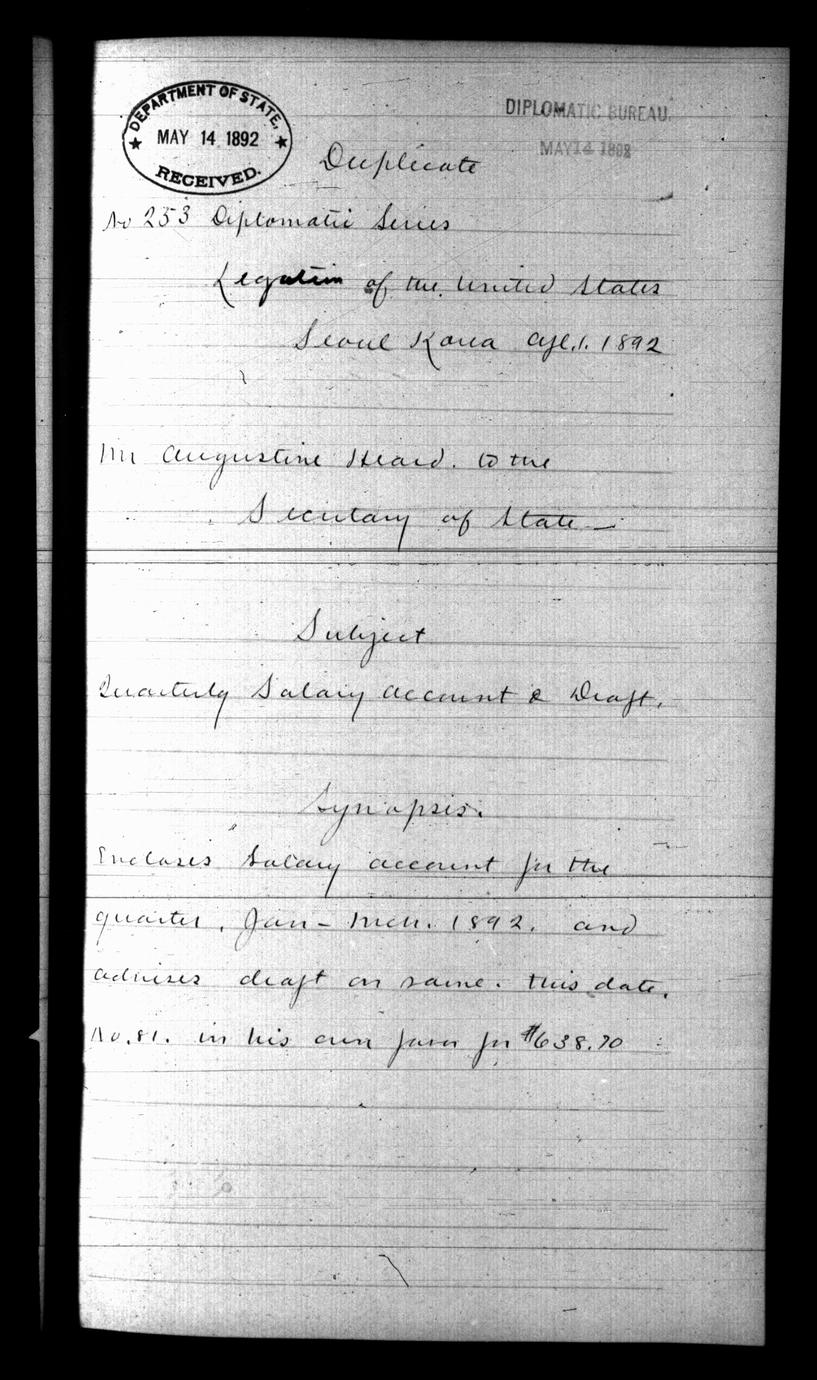 DEPARTMENT OF STATE,
MAY 14 1892
RECEIVED.
DIPLOMATIC BUREAU,
MAY 14 1892
Duplicate
No 253 Diplomatic Series
Legation of the United States
Seoul Korea Apl. 1. 1892
Mr Augustine Heard. to the
Secretary of State —
Subject
Quarterly Salary account & Draft.
Synopsis.
Encloses Salary account for the
quarter, Jan - Mch. 1892. and
advises draft on same. this date,
No. 81. in his own favor for $638.70